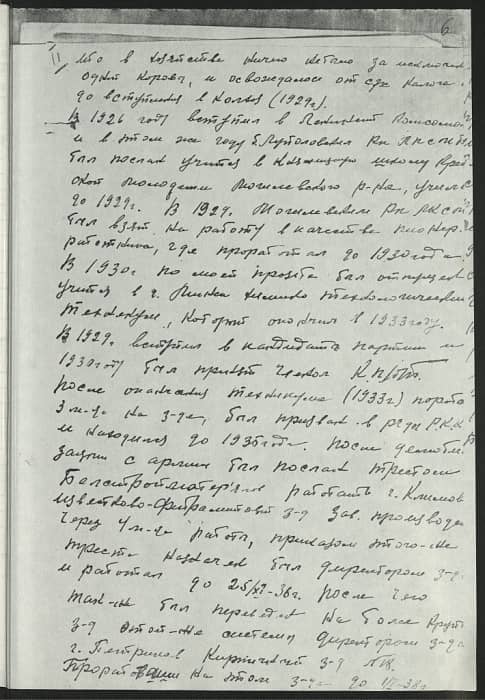 6
что в хозяйстве ничего не было за исключен.
одной коровы, и освобождалось от с/х налога
до вступления в колхоз (1929г.)
В 1926 году вступил в Ленинский Комсомол
и в этом же году б. Луполовским Рк ЛКСМБ
был послан учится в школу крест-
ской молодежи Могилевского р-на, учился
до 1929г. В 1929г. Могилевским Рк ЛКСМ
был взят на работу в качестве пионер.
работника, где проработал до 1930 года.
В 1930г по моей просьбе был отпущен
учится в г. Минск химико технологический
техникум, который окончил в 1933 году.
В 1929г. вступил в кандидаты партии и
1930 году был принят членом К.П/б/Б.
После окончания техникума (1933г) порабо
3 м-ца на з-де, был призван в ряды Р.К.К
и находился до 1935 года. После демоби.
зации с армии был послан трестом
Белстройматер'ялов работать г. Климов
известково- з-д зав. производс
Через 4 м-ца работы, приказом этого-же
треста назначен был директором з-да
и работал до 25/XI-36г. после чего
так-же был переведен на более круп
з-д этой-же системы директором з-да
г. Петриков Кирпичный з-д
Проработавши на этом з-де до III-38г